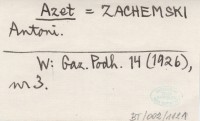 Azet = ZACHEMSKI
Antoni.
W: Gaz. Podh. 14 (1926),
nr 3.